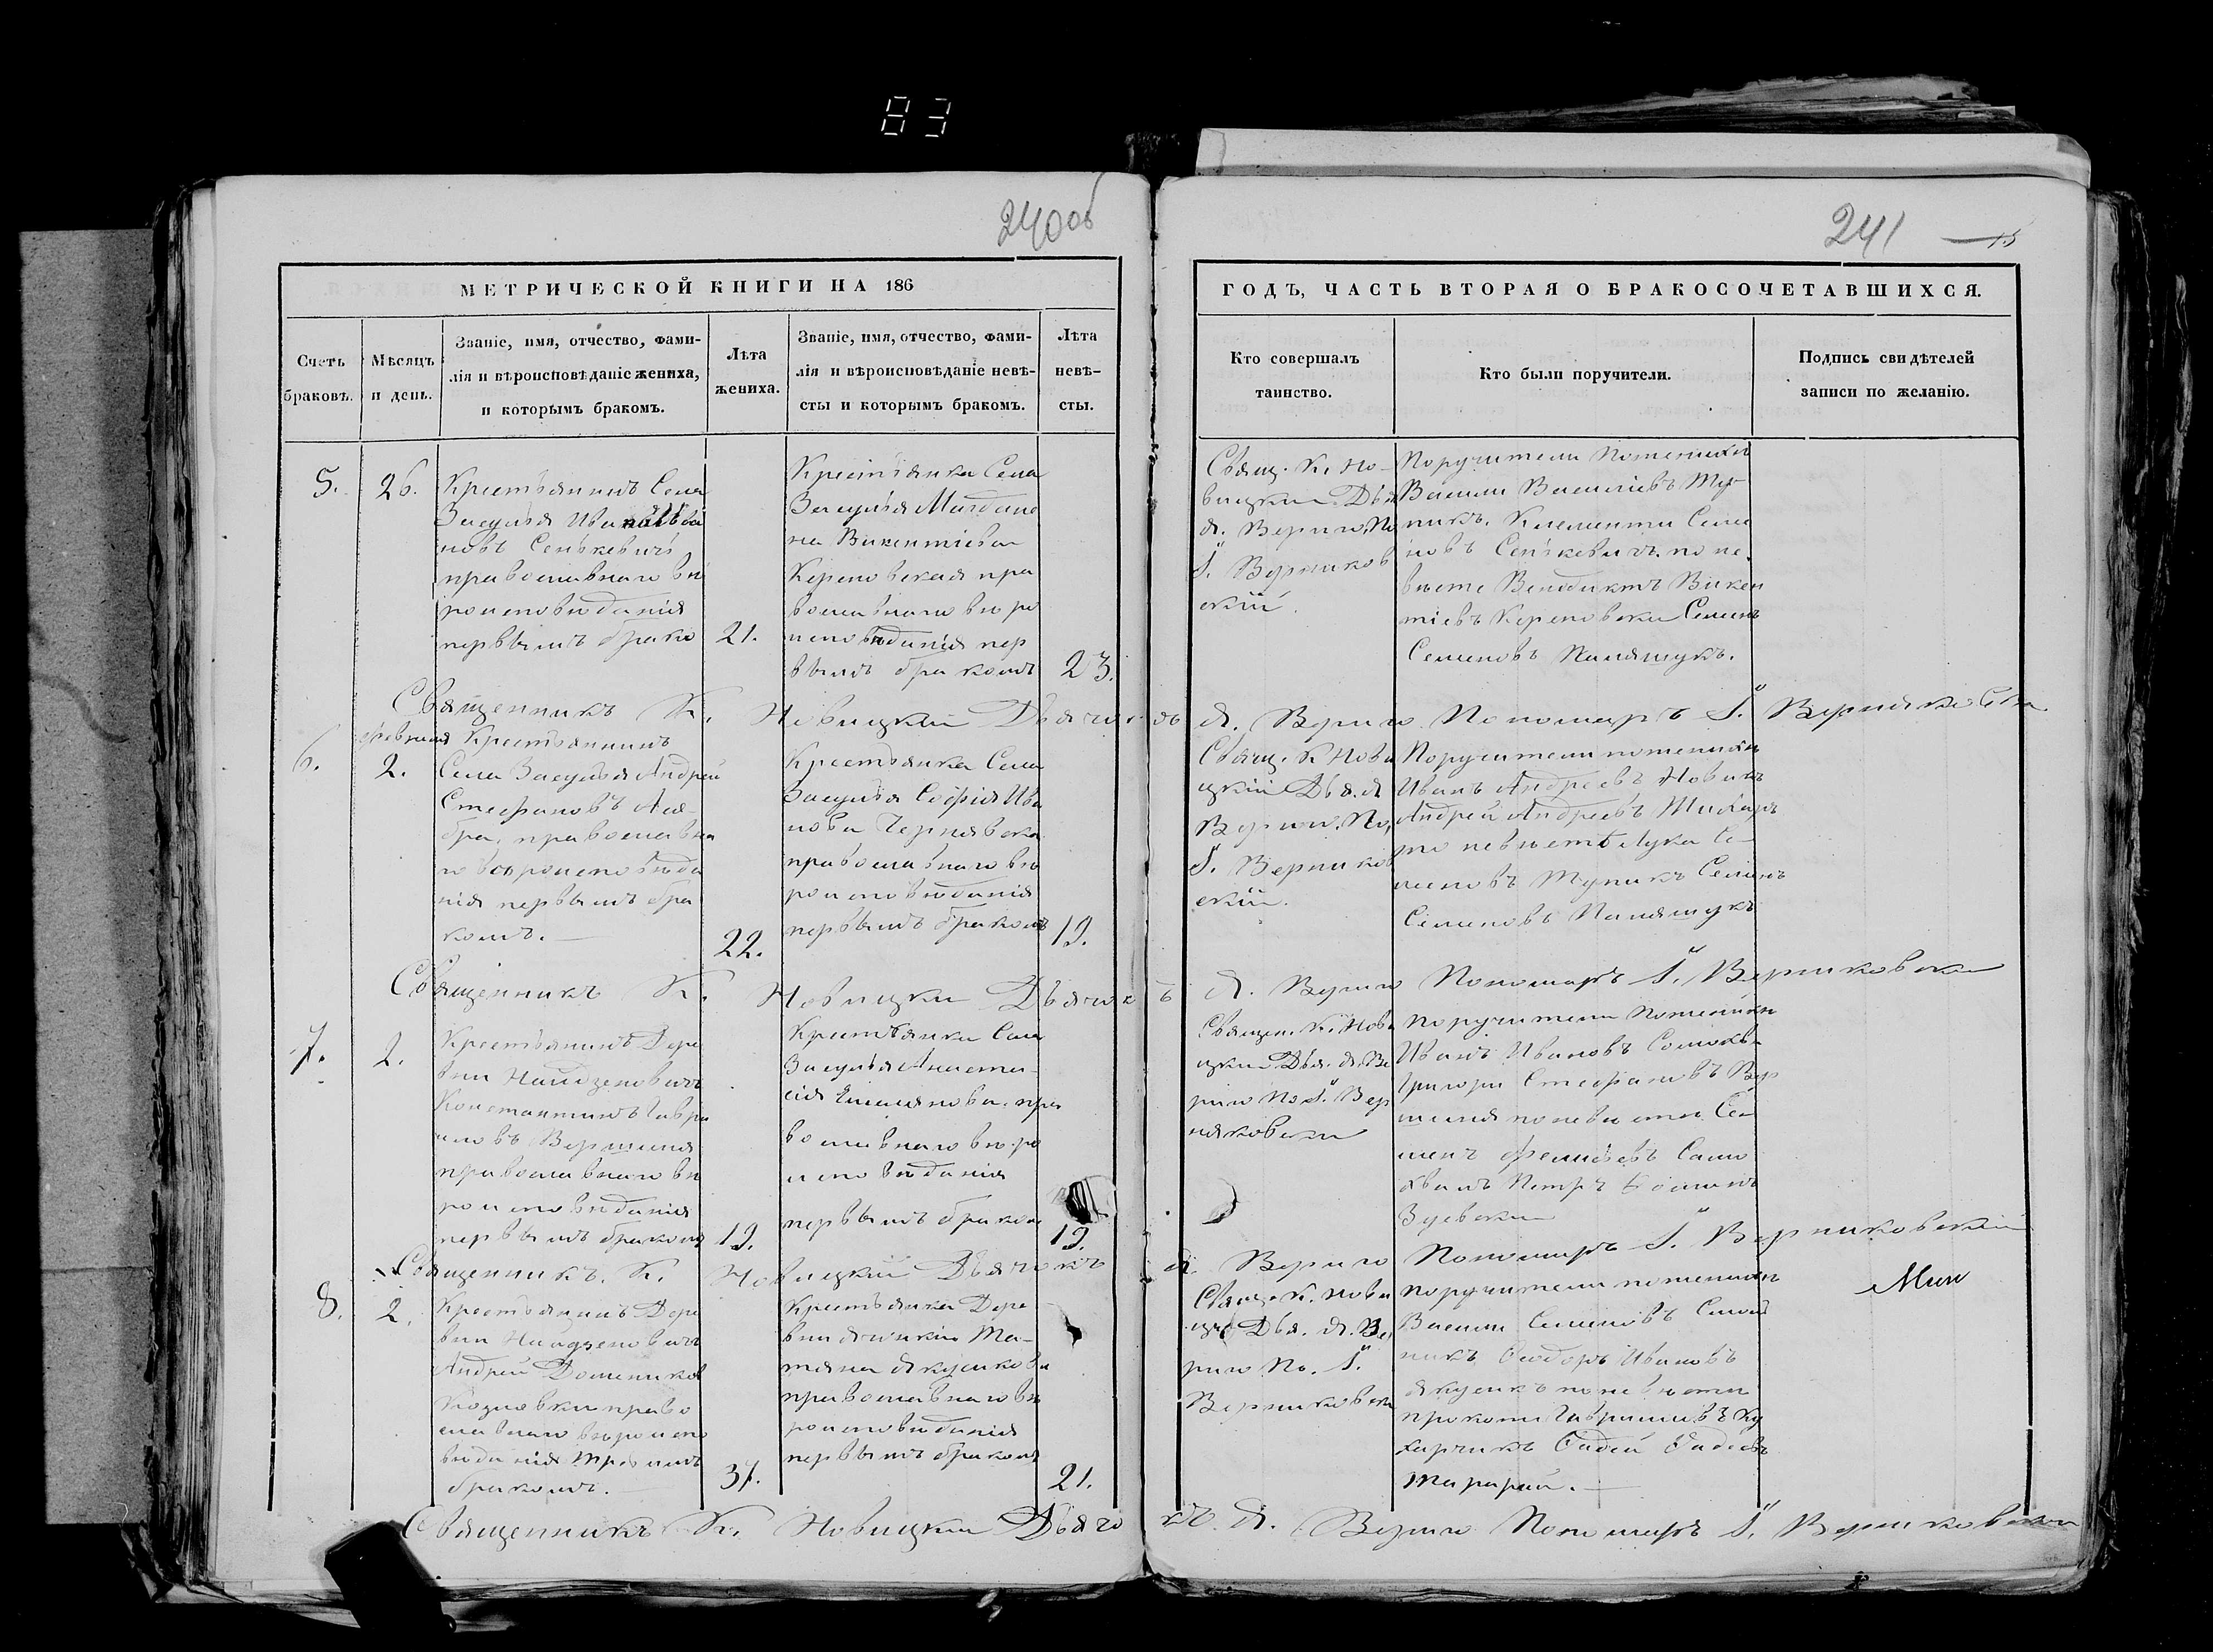 83
240 об
241
15
МЕТРИЧЕСКОЙ КНИГИ НА 186
Счетъ
браковъ.
Мѣсяцъ
и день.
Званіе, имя, отчество, фами-
лія и вѣроисповѣданіе жениха,
и которымъ бракомъ.
Лѣта
жениха.
Званіе, имя, отчество, фами-
лія и вѣроисповѣданіе невѣ-
сты и которымъ бракомъ.
Лѣта
невѣ-
сты.
ГОДЪ, ЧАСТЬ ВТОРАЯ О БРАКОСОЧЕТАВШИХСЯ.
Кто совершалъ
таинство.
Кто были поручители.
Подпись свидѣтелей
записи по желанію.
5.
26.
Крестьянинъ Села
Засулья
новъ Сенькевичъ
православнаго вѣ
роисповѣданія
первымъ брако
21.
Крестьянка Села
Засулья Магдале
на Викентіева
Кереновская пра
вославнаго вѣро
исповѣданія пер
вымъ бракомъ
23.
Свящ. К. Но-
вицкій Дья
Я. Верило По
І. Верников
скій.
Поручители по женихѣ
Василій Василіевъ Ту-
пикъ. Климентій Семе
новъ Сенькевичъ. по не
вѣсте Венедиктъ Викен
тіевъ Кереновскій Семенъ
Семеновъ Паляшукъ.
Священникъ К. Новицкій Дьячокъ Я. Верило Пономаръ І.
6.
Февраля
2.
Крестьянинъ
Села Засулья Андрей
Стефановъ
православна
го вѣроисповѣда
нія первымъ бра
комъ.
22.
Крестьянка Села
Засулья Софія Ива
нова Чернявска
православнаго вѣ
роисповѣданія
первымъ бракомъ
19.
Свящ. К Нови
цкій Дья. Я
Верило. По.
І. Верников
скій.
Поручители по женихѣ
Иванъ Андреевъ Новикъ
Андрей Андреевъ
по невѣстѣ Лука Се-
меновъ Тупикъ Семенъ
Семеновъ Паляшукъ
Священникъ К. Новицкій Дьячокъ Я. Верило Пономаръ І. Верниковскій
7.
2.
Крестьянинъ Дере
вни Найдзеновичъ
Константинъ Гаври
ловъ Вершиля
православнаго вѣ
роисповѣданія
первымъ бракомъ
19.
Крестьянка Села
Засулья Анаста-
сія пра
вославнаго вѣро
исповѣданія
первымъ браком
19.
Священ. К. Нови
цкій Дья. Я. Ве
рило По І. Вер
няковскій
Поручители по женихѣ
Иванъ Ивановъ
Григорій Стефановъ Вер
шиля по невѣсте Се
менъ
Петръ
Зуевскій
Священникъ. К. Новицкій Дьячокъ Я. Верило Пономаръ І. Верниковскій
8.
2.
Крестьянинъ Дере
вни Найдзеновичъ
Андрей Домиников
Козловкій право
славнаго вѣроиспо
вѣданія третимъ
бракомъ.
37.
Крестьянка Дере
вни Ячонки Та-
тяна Якусикова
православнаго вѣ
роисповѣданія
первымъ бракомъ
21.
Свящ. К. Нови
цкій Дья. Я. Ве
рило По. І.
Верниковскій
Поручители по женихѣ
Василій Семеновъ
Ѳеодоръ Ивановъ
Якусикъ по невѣсти
Прокопій Гавриловъ Ку
харчикъ Фадей Фадеевъ
Тарарай.
Священникъ К. Новицкій Дьячокъ Я. Верило Пономаръ І. Верниковскій